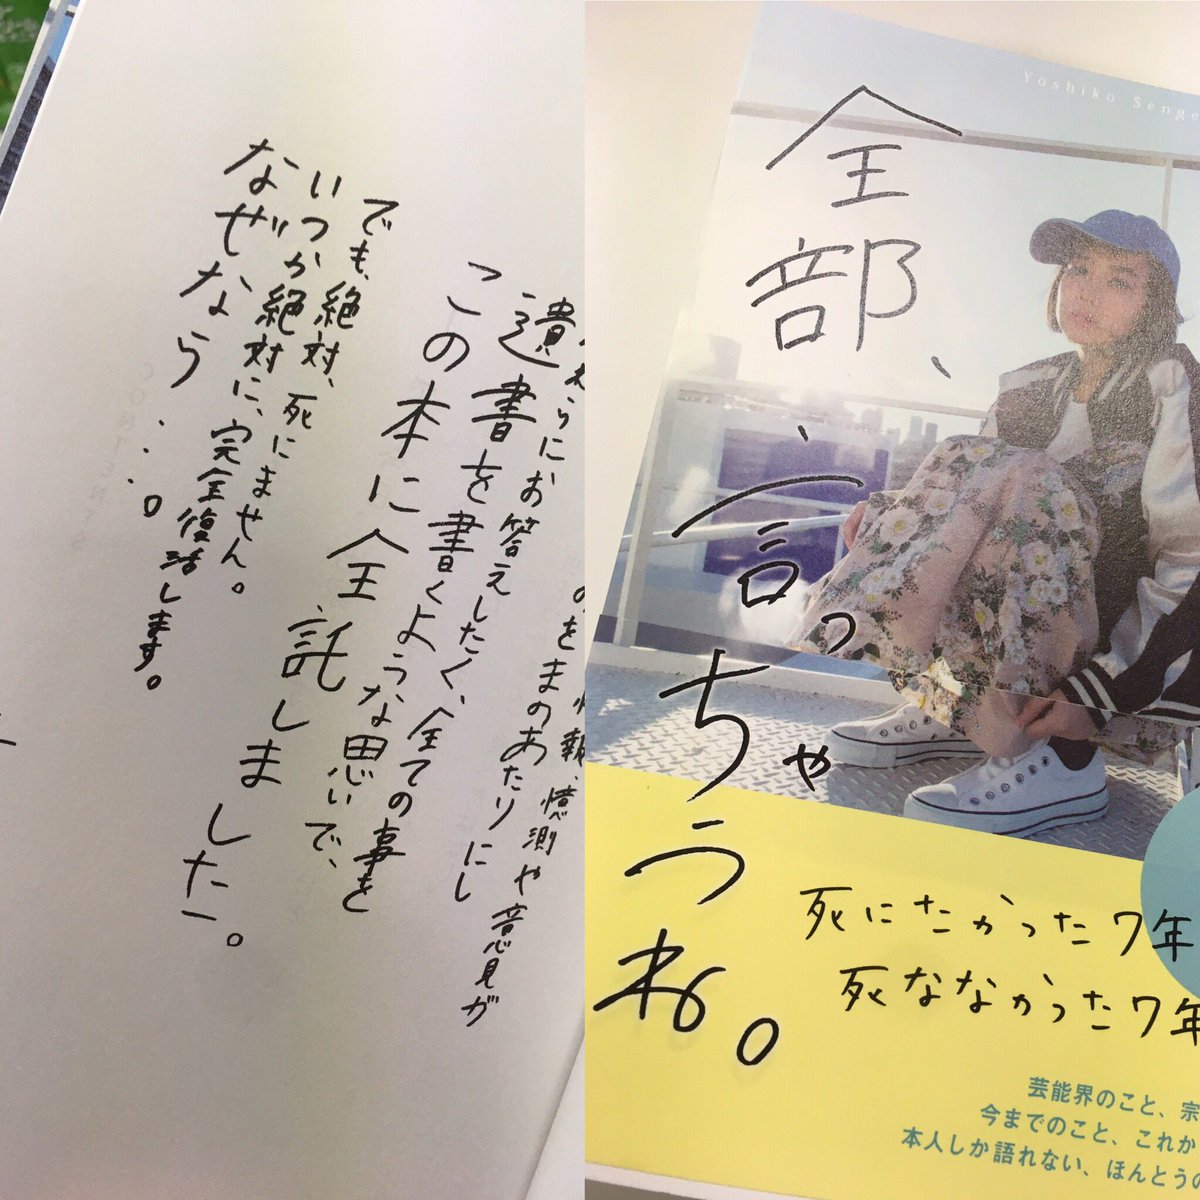 情報、憶測や意見が
のをまのあたりにし
らにお答えしたく、全ての事を
遺書を書くような思いで、
この本に全託しました。
でも、絶対、死にません。
いつか絶対に、完全復活します。
なぜなら...。
CONTENT
Yoshiko Senge
全部、言っちゃうね。
死にたかった7年
死ななかった7年
芸能界のこと、宗
今までのこと、これか
本人しか語れない、ほんとうの